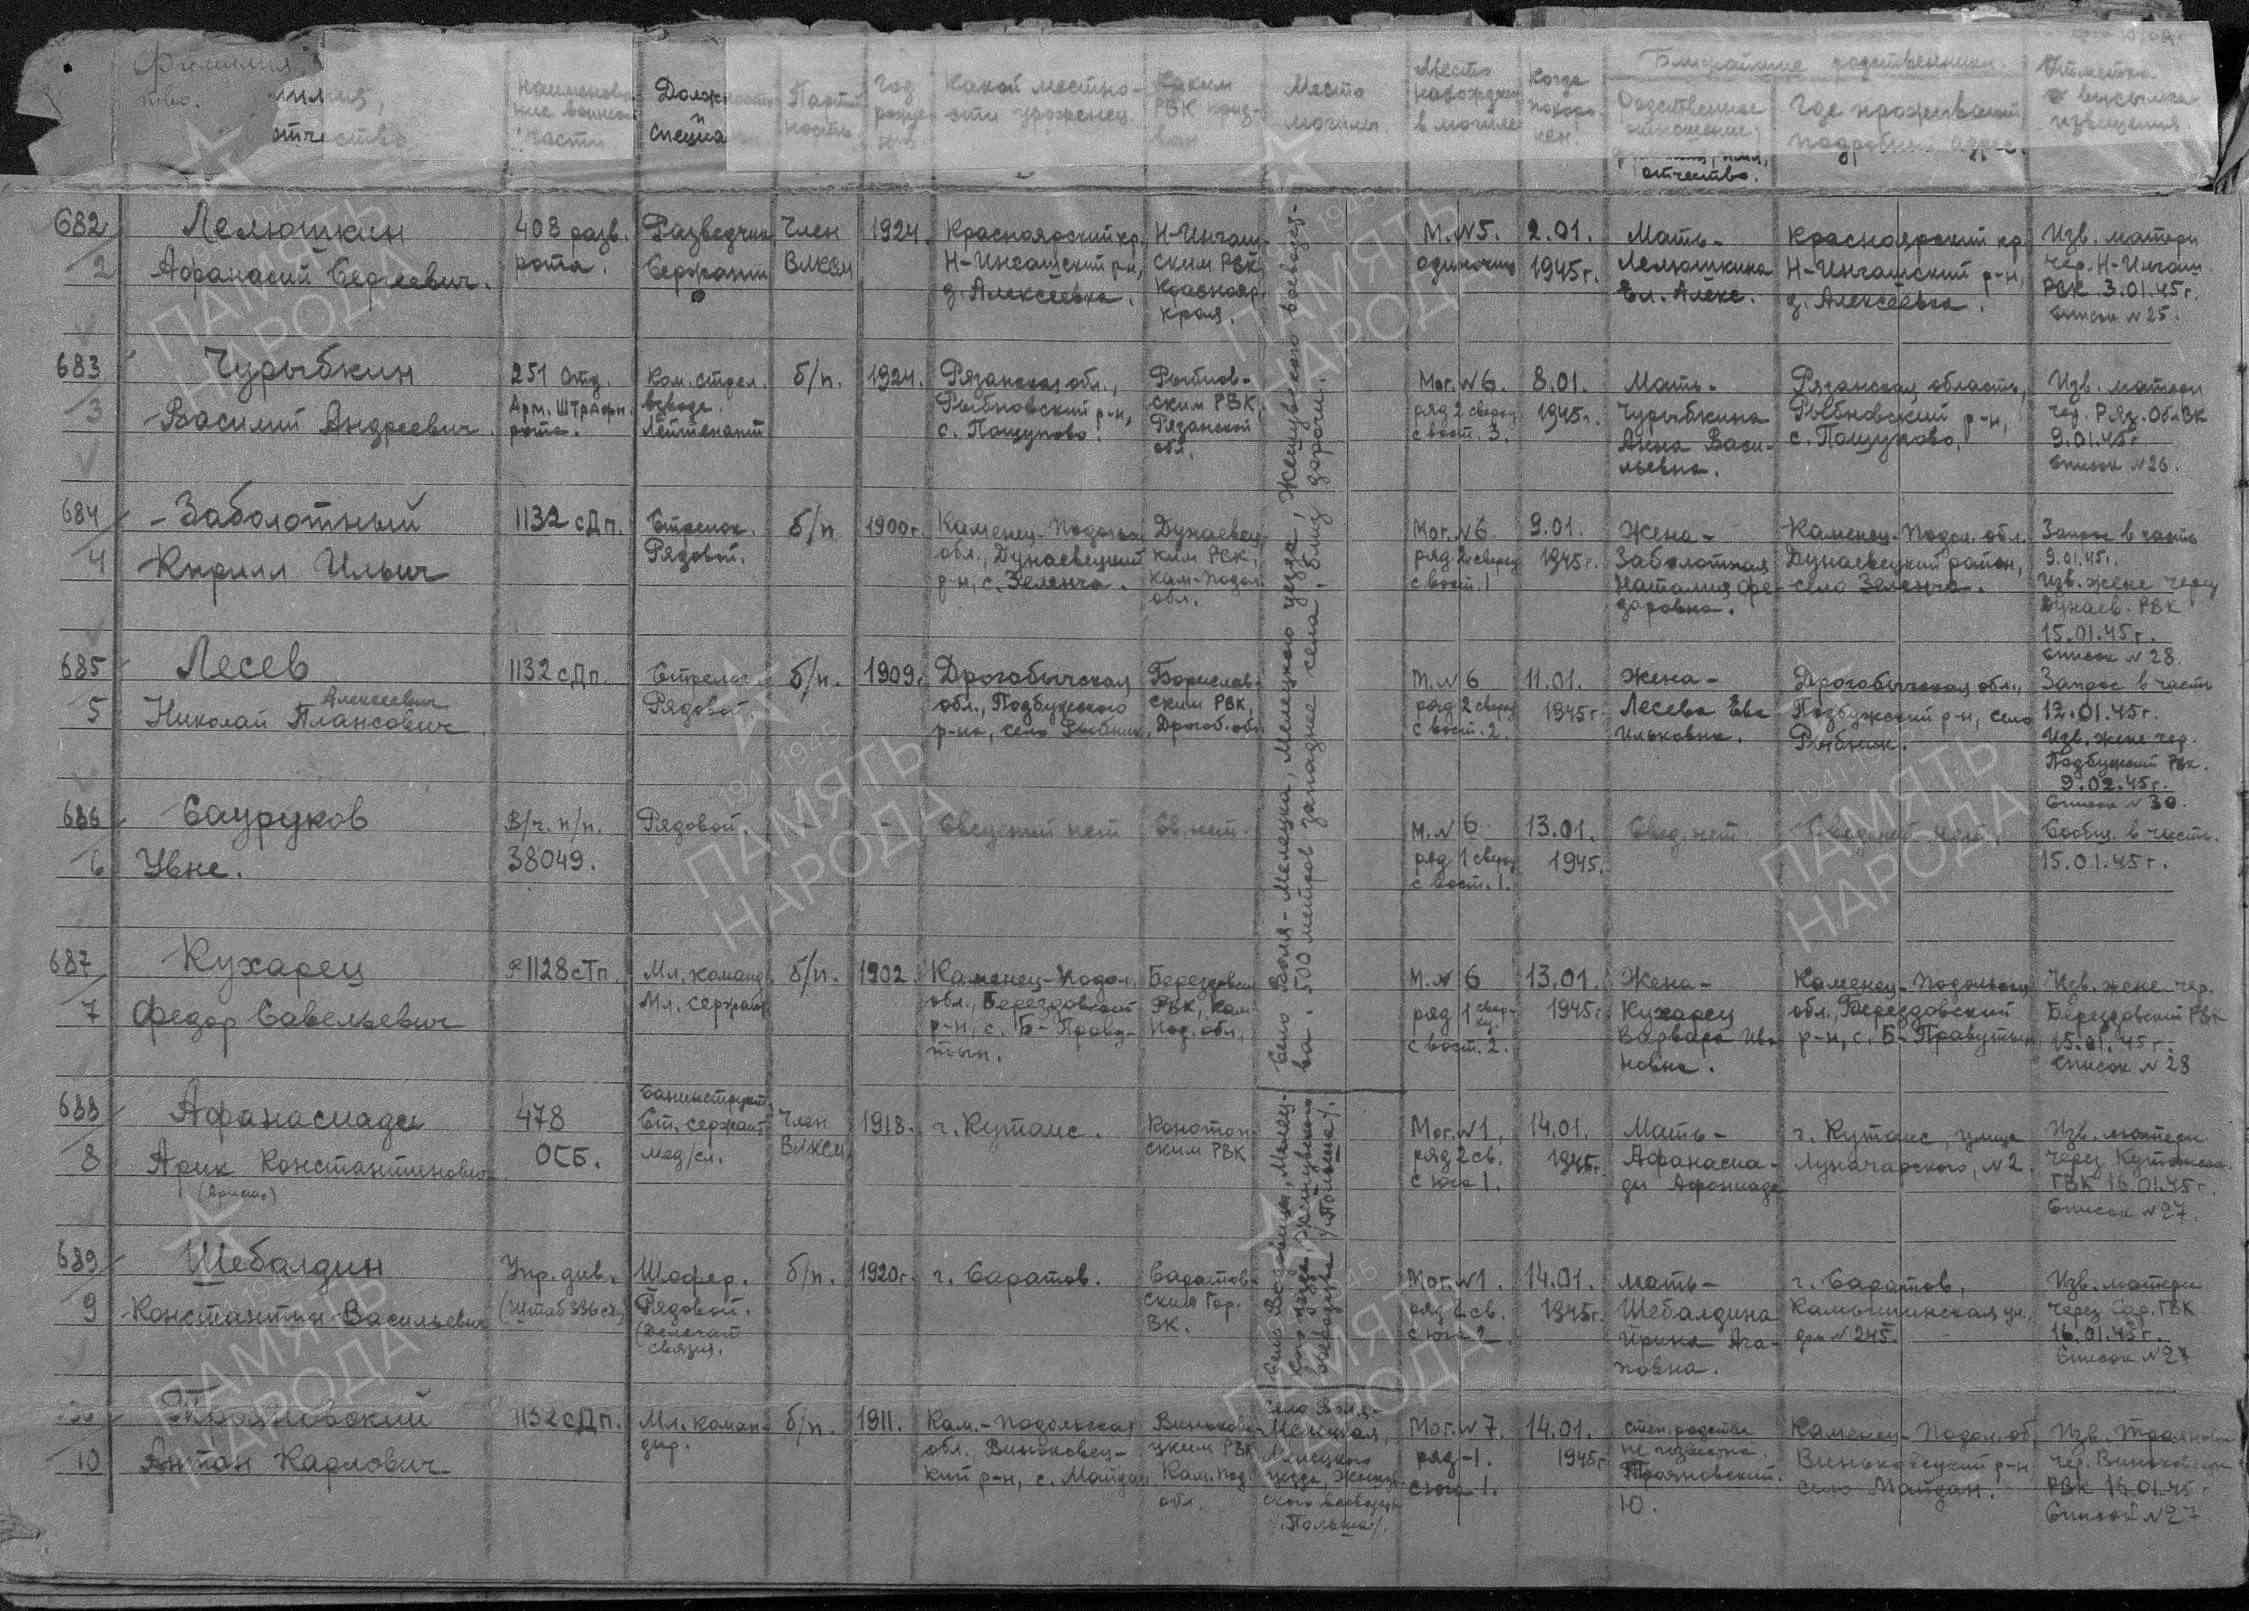 Фамилия,
отчество
наименова-
ние воинской
части
Должность
и
специа
Партий
ность
Год
рожде
ния
Какой местно-
сти уроженец
Каким
РВК приз-
ван
Место
могилы
Место
нахождения
в могиле
Когда
похоро-
нен.
Ближайшие родственники.
Родственное
отношение,
имя,
отчество.
Где проживают
подробный адрес.
Отметка
о высылке
извещения
682/2
Лелюшкин
Афанасий Сергеевич.
408 разв.
рота.
Разведчик
Сержант
Член
ВЛКСМ
1924.
Красноярский кр.
Н-Ингашский р-н,
д. Алексеевка.
Н-Ингаш-
ским РВК,
Краснояр.
края.
М. №5.
одиночно
2.01.
1945г.
Мать-
Лелюшкина
Ел. Алекс.
Красноярский кр.
Н-Ингашский р-н,
д. Алексеевка.
Изв. матери
чер. Н-Ингаш.
РВК 3.01.45г.
Список №25.
683/3
Чурыбкин
Василий Андреевич.
251 отд.
Арм. Штрафн.
рота.
Ком. стрел.
взвода.
Лейтенант
б/п.
1924.
Рязанская обл.,
Рыбновский р-н,
с. Пощупово.
Рыбнов-
ским РВК,
Рязанской
обл.
Мог. №6.
ряд 2 сверху
с вост. 3.
8.01.
1945г.
Мать-
Чурыбкина
Анна Васи-
льевна.
Рязанская область,
Рыбновский р-н,
с. Пощупово.
Изв. матери
чер. Ряз. ОблВК
9.01.45г
Список №26.
684/4
Заболотный
Кирилл Ильич
1132 сДп.
Стрелок.
Рядовой.
б/п
1900г.
Каменец-Подольск
обл., Дунаевецкий
р-н, с. Зеленча.
Дунаевец
ким РВК,
Кам-Подол
обл.
Мог. №6
ряд 2 сверху
с вост. 1
9.01.
1945г.
Жена-
Заболотная
Наталия Фе-
доровна.
Каменец-Подол. обл.
Дунаевецкий район,
село Зеленча.
Запрос в часть
9.01.45г.
Изв. жене через
Дунаев. РВК
15.01.45г.
Список №28.
685/5
Лесев
Алексеевич
Николай Плансович
1132 сДп.
Стрелок
Рядовой
б/п.
1909.
Дрогобычская
обл., Подбужского
р-на, село Рыбник,
Борислав-
ским РВК,
Дрогоб. обл.
М. №6
ряд 2 сверху
с вост. 2.
11.01.
1945г
Жена-
Лесева Ева
Ильковна.
Дрогобычская обл.,
Подбужский р-н, село
Рыбник.
Запрос в часть
12.01.45г.
Изв. жене чер.
Подбужский РВК.
9.02.45г.
Список №30.
686/6
Сауруков
Увне.
В/ч. п/п.
38049.
Рядовой
-
Сведений нет
Св. нет.
М. №6
ряд 1 сверху
с вост. 1.
13.01.
1945.
Свед. нет
Сведений нет.
Сообщ. в часть.
15.01.45г.
687/7
Кухарец
Федор Савельевич
1128сТп.
Мл. команд
Мл. сержант
б/п.
1902.
Каменец-Подол.
обл., Берездовский
р-н, с. Б-Праву-
тын.
Берездовск
РВК, Кам-
Под. обл.,
М. №6
ряд 1 сверху
с вост. 2.
13.01.
1945г.
Жена-
Кухарец
Варвара Ива
новна.
Каменец-Подольск
обл., Берездовский
р-н, с. Б-Правутын
Изв. жене чер.
Берездовский РВК
15.01.45г.
Список №28
Село Воля-Мелецка, Мелецкого уезда, Жешувского воеводст-
ва. 500 метров западнее села, близ дороги.
688/8
Афанасиади
Арик Константинович
478
ОСБ.
Санинструкт.
Ст. сержант
мед/сл.
Член
ВЛКСМ
1918.
г. Кутаис.
Конотоп-
ским РВК
Мог. №1,
ряд 2 св.
с юга 1.
14.01.
1945г.
Мать-
Афанасиа-
ди
г. Кутаис, улица
Луначарского, №2.
Изв. матери
через Кутаисск.
ГВК 16.01.45г.
Список №27.
689/9
Шебалдин
Константин Васильевич
Упр. див.
(Штаб 336 сд)
Шофер.
Рядовой.
(Делегат
связи).
б/п.
1920г.
г. Саратов.
Саратов-
ским Гор.
ВК.
Мог. №1.
ряд 2 св.
с юга 2.
14.01.
1945г.
мать-
Шебалдина
Ирина Ага-
повна.
г. Саратов,
Камышинская ул.
дом №245.
Изв. матери
через Сар. ГВК
16.01.45г.
Список №27
/Польша/.
Трояновский
Антон Карлович
10
1132 сДп.
Мл. коман-
дир.
б/п.
1911.
Кам.-Подольская
обл. Виньковец-
кий р-н, с. Майдан
Винькове-
цким РВК
Кам. Под.
обл.
Село Воля-
Мелецкая,
Мелецкого
уезда, Жешув-
ского воеводст
/Польша/.
Мог. №7
ряд-1.
с юга 1.
14.01.
1945г
степ. родства
не известна.
Трояновский.
Ю.
Каменец-Подол. об.
Виньковецкий р-н
село Майдан.
Изв. Трояновск
чер. Виньковецк
РВК 16.01.45г
Список №27
1941 1945
ПАМЯТЬ
НАРОДА